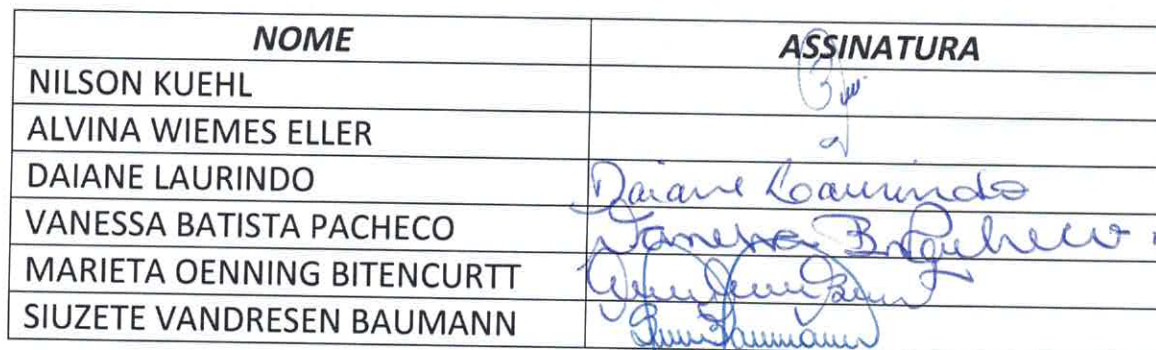 NOME ASSINATURA
NILSON KUEHL
ALVINA WIEMES ELLER
DAIANE LAURINDO Daiane Laurindo
VANESSA BATISTA PACHECO Vanessa B. Pacheco
MARIETA OENNING BITENCURTT
SIUZETE VANDRESEN BAUMANN Baumann